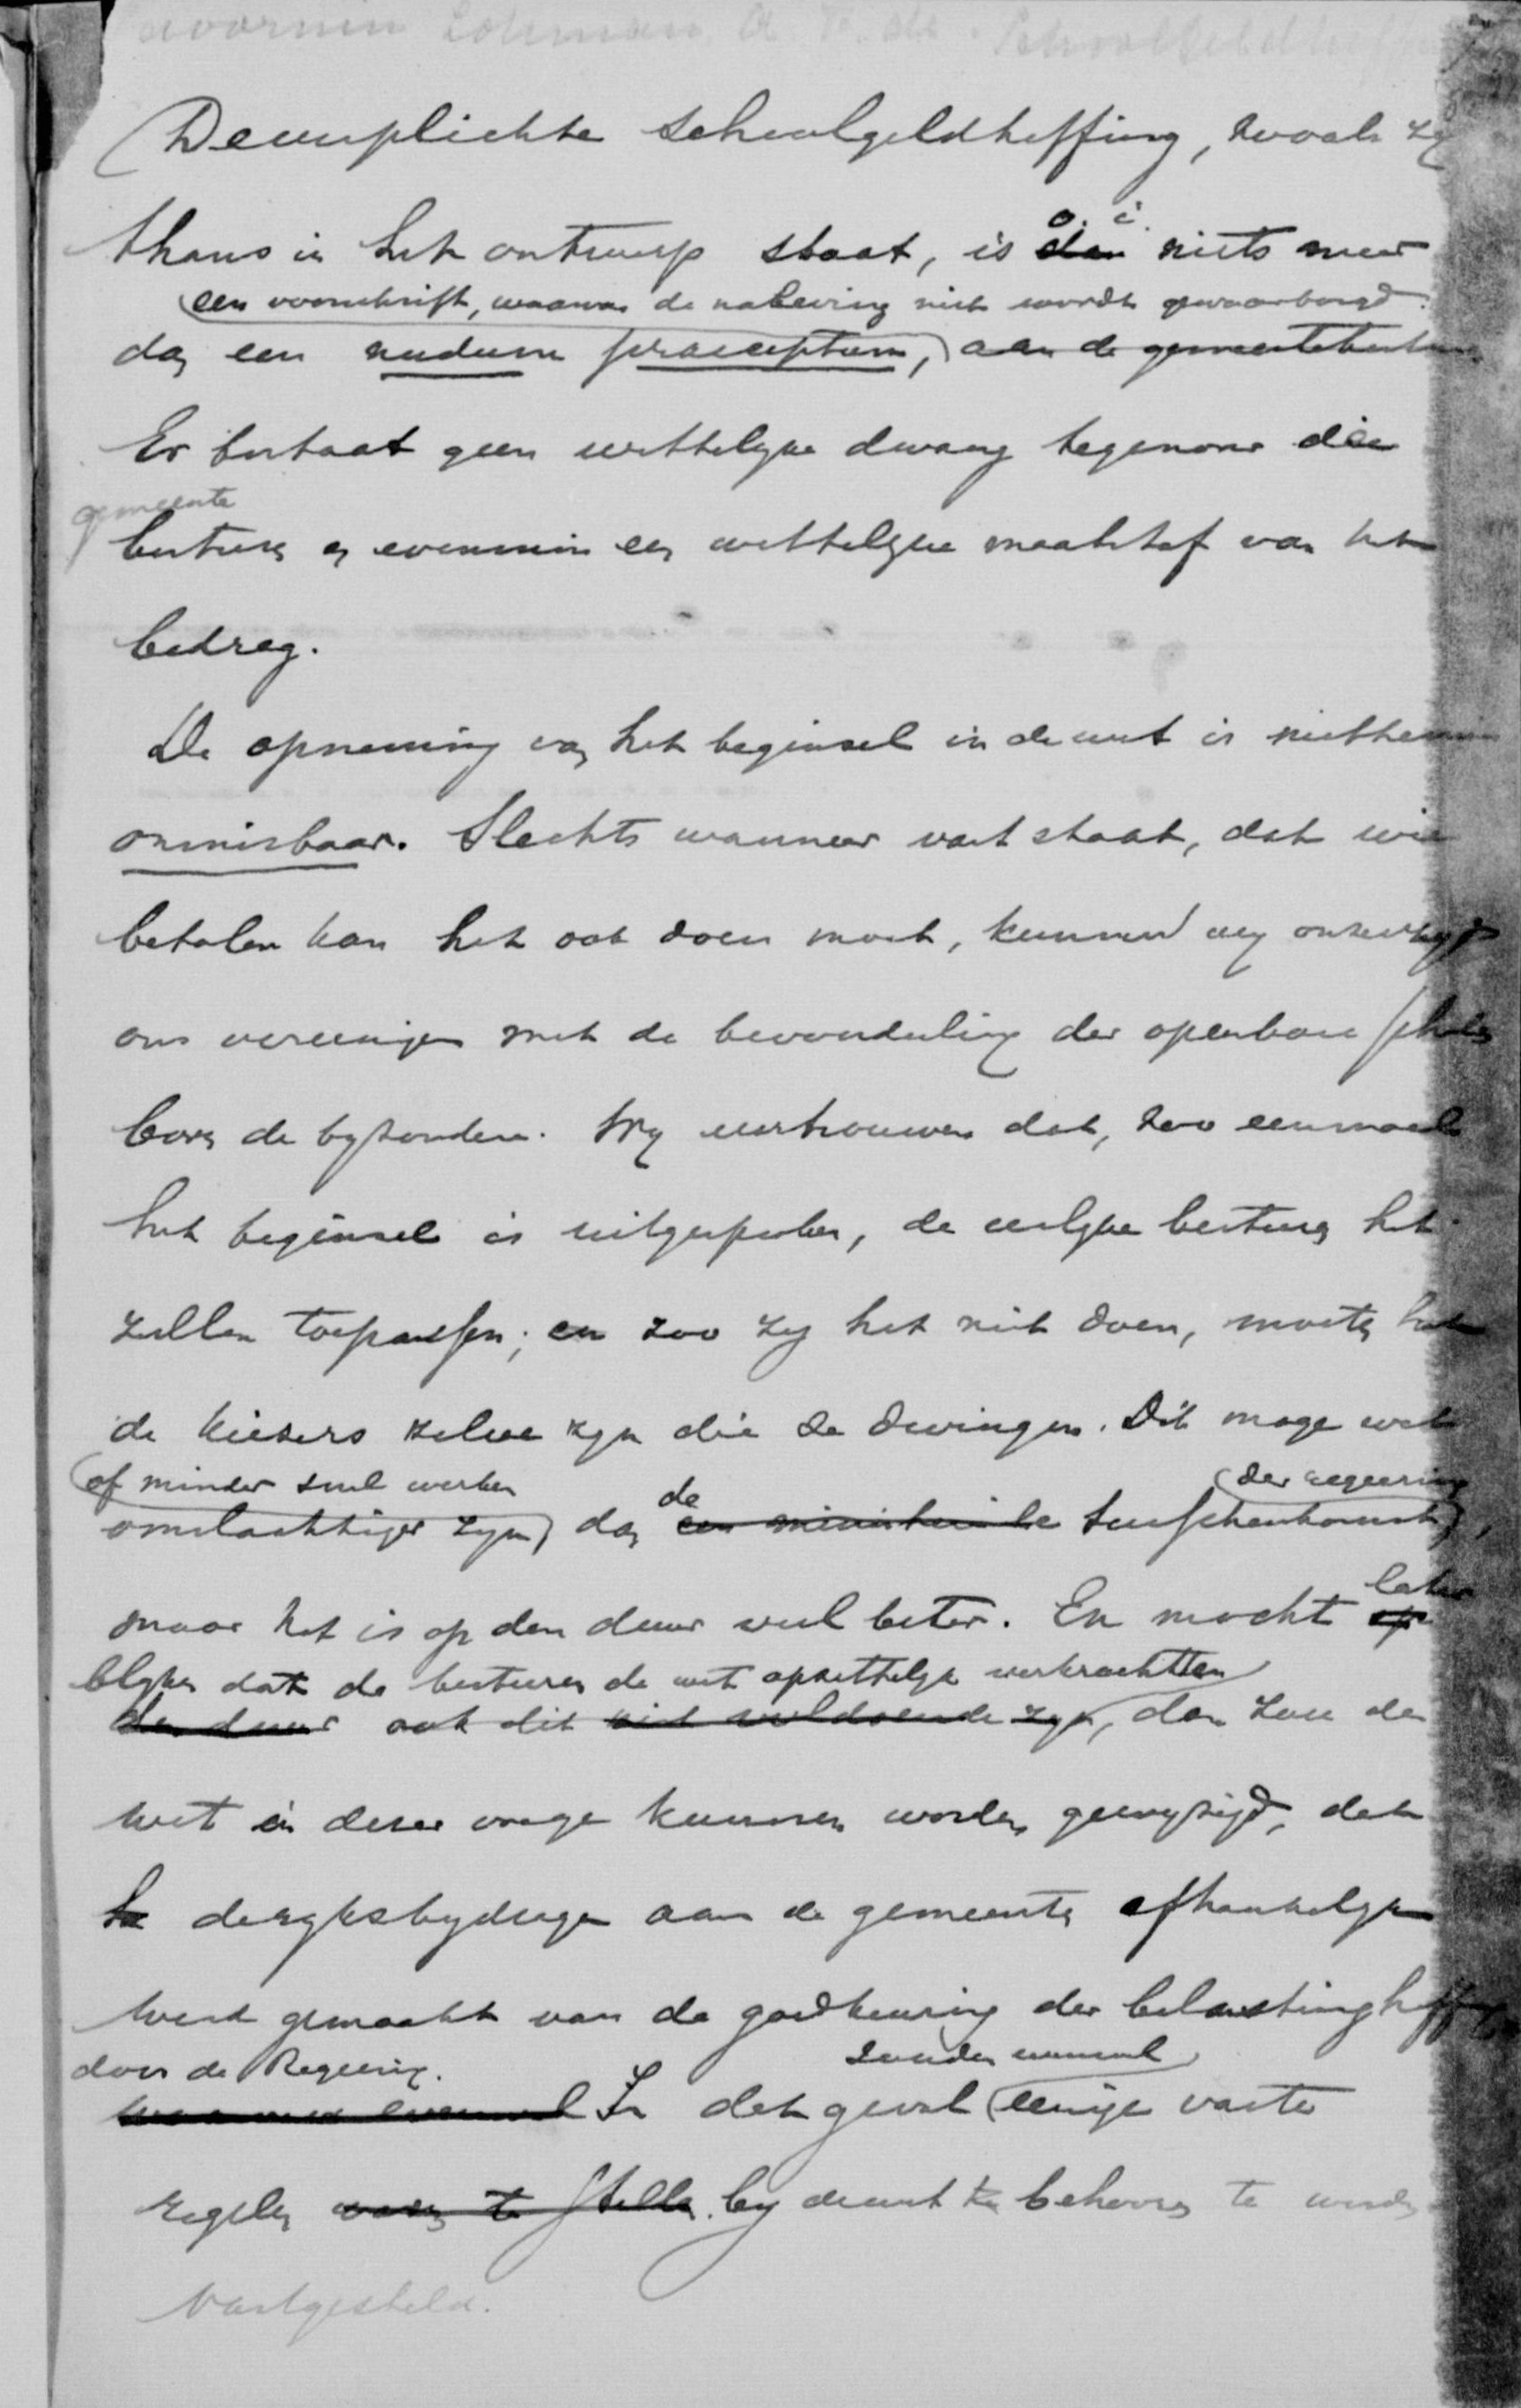 De verplichte schoolgeldheffing, zooals zij
thans in het ontwerp staat, is dan o.i. niets meer
een voorschrift, waarvan de naleving niet wordt gewaarborgd.
dan een nudum praeceptum, aan de gemeentebesturen
Er bestaat geen wettelijke dwang tegenover die
gemeente
besturen en evenmin een wettelijke maatstaf van het
bedrag.
De opneming van het beginsel in de wet is niettemin
onmisbaar. Slechts wanneer vast staat, dat wie
betalen kan het ook doen moet, kunnen wij onzerzijds
ons vereenigen met de bevoordeeling der openbare scholen
boven de bijzondere. Wij vertrouwen dat, zoo eenmaal
het beginsel is uitgesproken, de eerlijke besturen het
zullen toepassen; en zoo zij het niet doen, moeten het
de kiezers zelve zijn die ze dwingen. Dit moge wat
of minder snel werken
omslachtiger zijn dan een ministerieele de tusschenkomst der regeering,
maar het is op den duur veel beter. En mocht op later
blijken dat de besturen de wet opzettelijk verkrachtten
den duur ook dit niet voldoende zijn, dan zou de
wet in dezer voege kunnen worden gewijzigd, dat
de rijksbijdrage aan de gemeenten afhankelijk
werd gemaakt van de goedkeuring der belastingheffing
door de Regeering. zouden evenwel
waarvoor evenwel In dat geval eenige vaste
regelen waren te stellen bij de wet behooren te worden
vastgesteld.